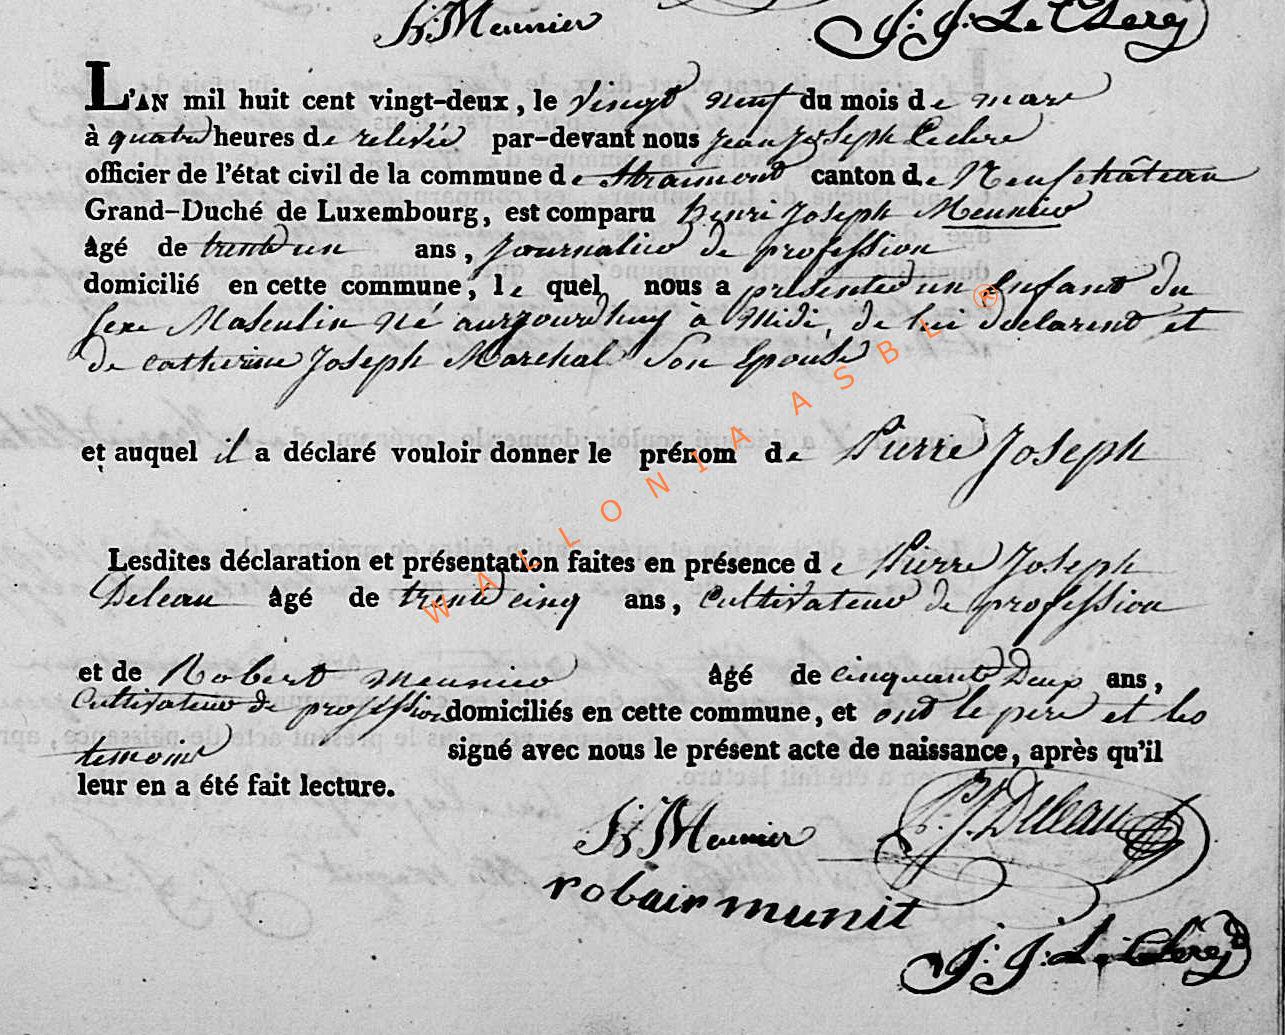 h Meunier J: J: Le Clerey
L'AN mil huit cent vingt-deux, le vingt neuf du mois de mars
à quatre heures de relevée par-devant nous Jean Joseph Leclere
officier de l'état civil de la commune de Straimont canton de Neufchâteau
Grand-Duché de Luxembourg, est comparu henri Joseph Meunier
âgé de trente un ans, journalier de profession
domicilié en cette commune, le quel nous a presentez un Enfant du
sexe Masculin né aurjourdhuy à Midi, de lui declarent et
de catherine Joseph Marchal Son Epouse
et auquel il a déclaré vouloir donner le prénom de Pierre Joseph
Lesdites déclaration et présentation faites en présence de Pierre Joseph
Deleau âgé de trente cinq ans, cultivateur de profession
et de Robert meunier âgé de cinquante Deux ans,
cultivateur de profession domiciliés en cette commune, et ont le pere et les
temoins signé avec nous le présent acte de naissance, après qu'il
leur en a été fait lecture.
h Meunier P: J: Deleau
robair munit
J: J: Le Clerey
WALLONIA ASBL ®